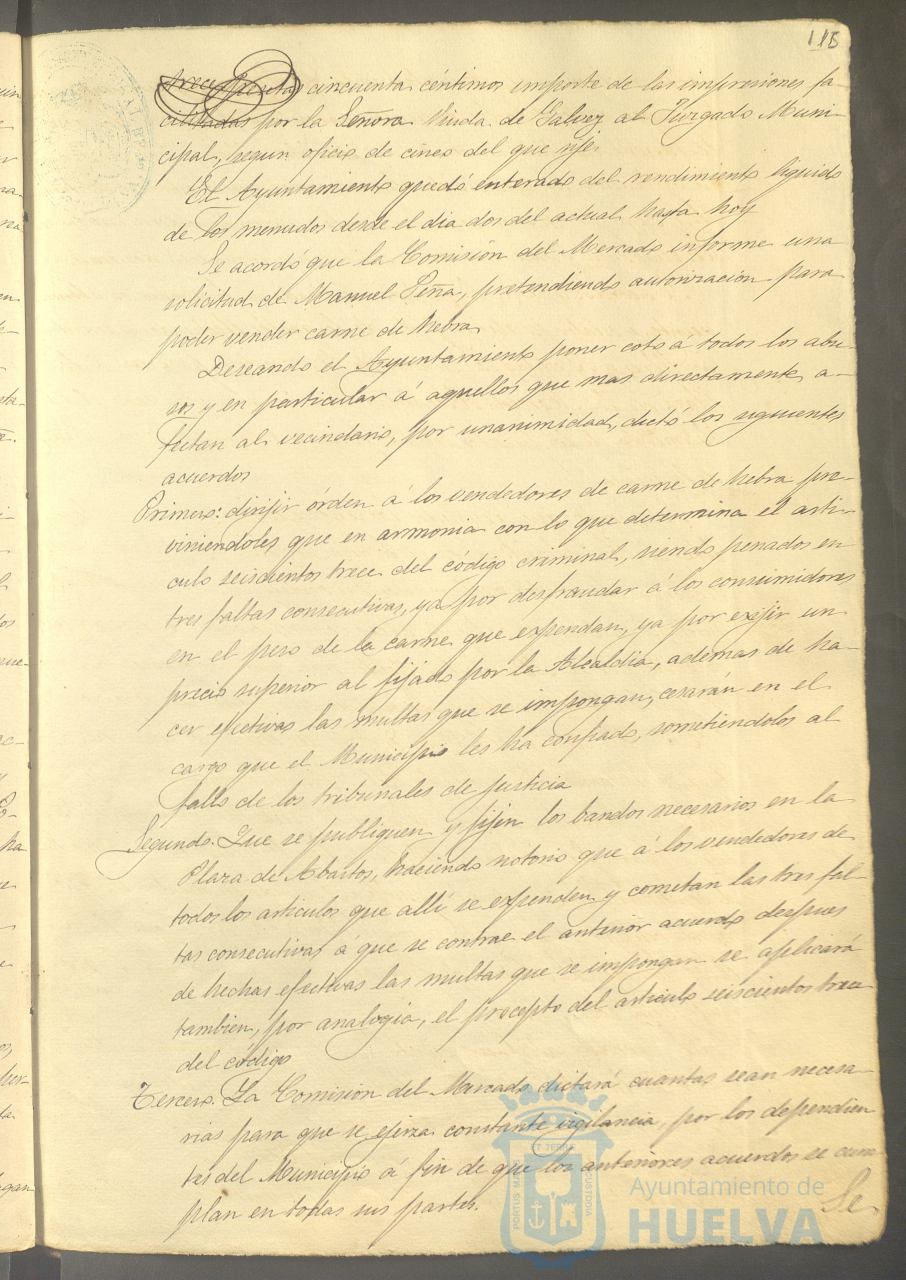 115
trece pesetas cincuenta céntimos importe de las impresiones fa-
cilitadas por la Señora Viuda de Galvez al Juzgado Muni-
cipal, segun oficio de cinco del que rije.
El Ayuntamiento quedó enterado del rendimiento líquido
de los menudos desde el dia dos del actual hasta hoy
Se acordó que la Comisión del Mercado informe una
solicitud de Manuel Peña, pretendiendo autorización para
poder vender carne de hebra.
Deseando el Ayuntamiento poner coto á todos los abu-
sos y en particular á aquellos que mas directamente a-
fectan al vecindario, por unanimidad, dictó los siguientes
acuerdos
Primero: dirijir órden á los vendedores de carne de hebra pre-
viniendoles que en armonia con lo que determina el arti-
culo seiscientos trece del código criminal, siendo penados en
tres faltas consecutivas, ya por desfraudar á los consumidores
en el peso de la carne que expendan, ya por exijir un
precio superior al fijado por la Alcaldia, ademas de ha-
cer efectivas las multas que se impongan, cesarán en el
cargo que el Municipio les ha confiado, sometiéndolos al
fallo de los tribunales de justicia
Segundo. Que se publiquen y fijen los bandos necesarios en la
Plaza de Abastos, haciendo notorio que á los vendedores de
todos los articulos que allí se expenden y cometan las tres fal-
tas consecutivas á que se contrae el anterior acuerdo despues
de hechas efectivas las multas que se impongan se aplicará
tambien, por analogia, el precepto del articulo seiscientos trece
del código
Tercero. La Comisión del Mercado dictará cuantas sean necesa-
rias para que se ejerza constante vigilancia, por los dependien-
tes del Municipio á fin de que los anteriores acuerdos se cum-
plan en todas sus partes.
Se
Ayuntamiento de
HUELVA